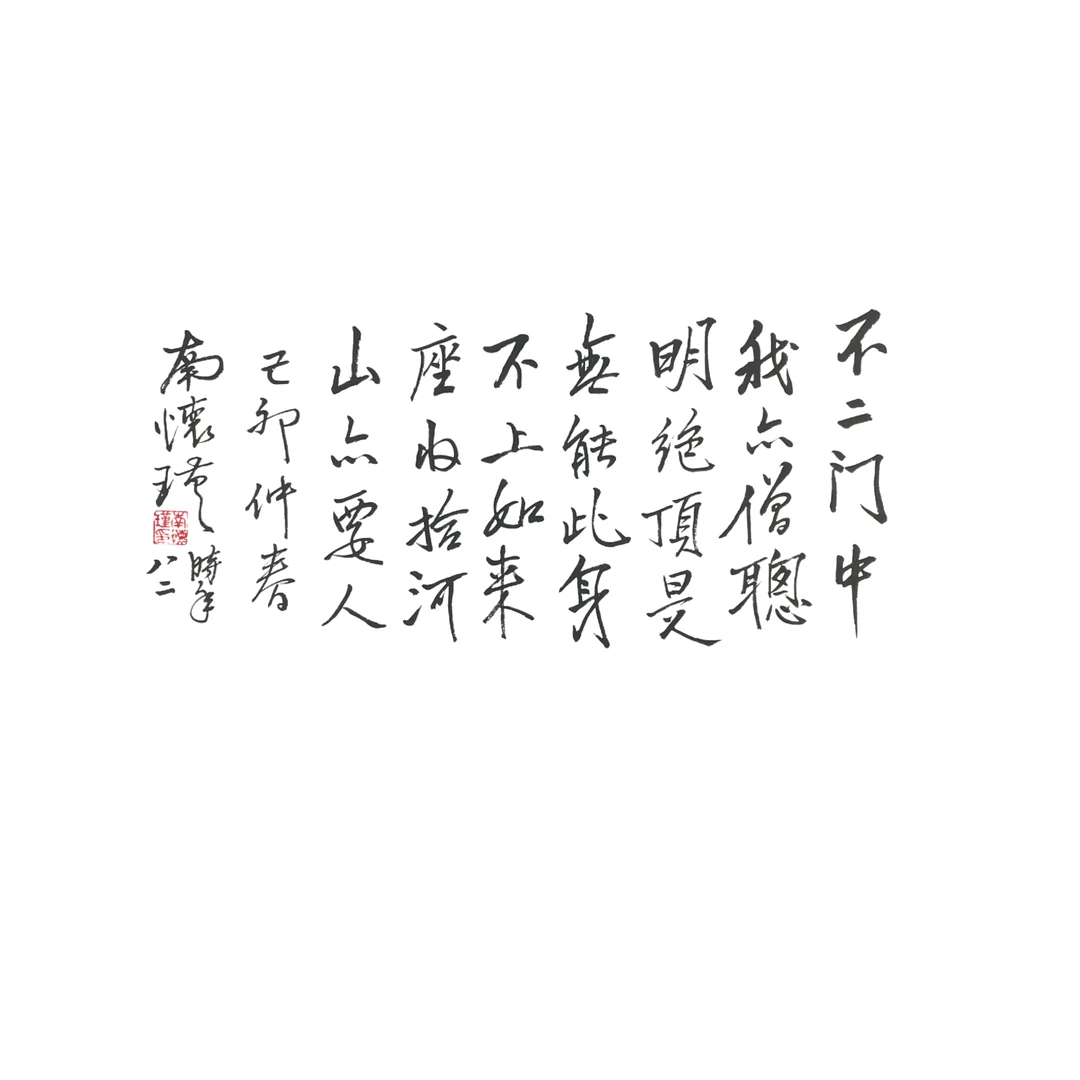 不二门中
我亦僧聰
明絶頂是
無能此身
不上如来
座收拾河
山亦要人
己卯仲春
南懷瑾
時年
八二
南懷瑾印